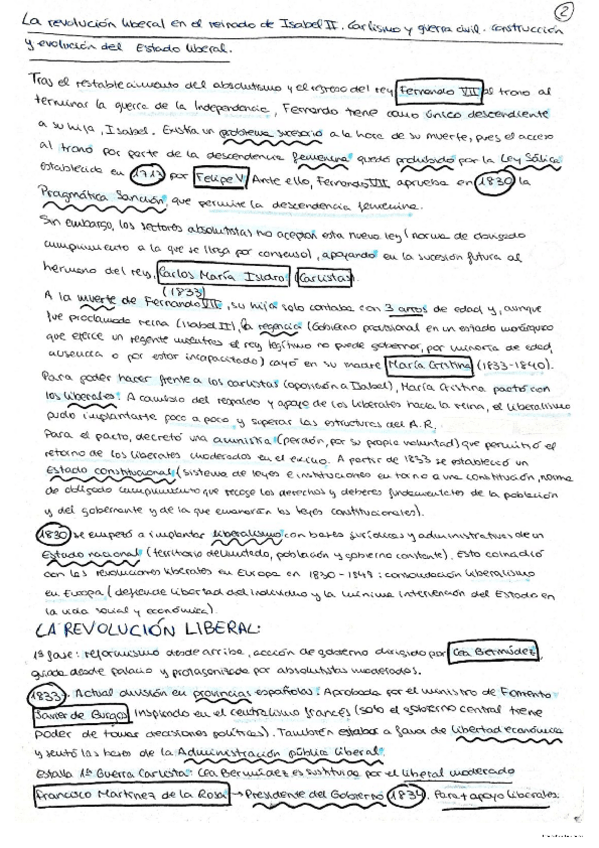 2
La revolución liberal en el reinado de Isabel II. Carlismo y guerra civil. Construcción
y evolución del Estado liberal.
Tras el restablecimiento del absolutismo y el regreso del rey Fernando VII al trono al
terminar la guerra de la Independencia, Fernando tiene como único descendiente
a su hija, Isabel. Existía un problema sucesorio a la hora de su muerte, pues el acceso
al trono por parte de la descendencia femenina quedó prohibido por la Ley Sálica
establecida en 1713 por Felipe V. Ante ello, Fernando VII aprueba en 1830 la
Pragmática Sanción, que permite la descendencia femenina.
Sin embargo, los sectores absolutistas no aceptan esta nueva ley (norma de obligado
cumplimiento a la que se llega por consenso), apoyando en la sucesión futura al
hermano del rey, Carlos María Isidro (Carlistas).
(1833)
A la muerte de Fernando VII, su hija solo contaba con 3 años de edad y, aunque
fue proclamada reina (Isabel II), la regencia (Gobierno provisional en un estado monárquico
que ejerce un regente mientras el rey legítimo no puede gobernar, por minoría de edad,
ausencia o por estar incapacitado) cayó en su madre María Cristina (1833-1840).
Para poder hacer frente a los carlistas (oposición a Isabel), María Cristina pactó con
los liberales. A cambio del respaldo y apoyo de los liberales hacia la reina, el liberalismo
pudo implantarse poco a poco y superar las estructuras del A.R.
Para el pacto, decretó una amnistía (perdón, por su propia voluntad) que permitió el
retorno de los liberales moderados en el exilio. A partir de 1833 se estableció un
Estado constitucional (sistema de leyes e instituciones en torno a una constitución, norma
de obligado cumplimiento que recoge los derechos y deberes fundamentales de la población
y del gobernante y de la que emanarán las leyes constitucionales).
1830 se empezó a implantar liberalismo con bases jurídicas y administrativas de un
Estado nacional (territorio delimitado, población y gobierno constante). Esto coincidió
con las revoluciones liberales en Europa en 1830-1848: consolidación liberalismo
en Europa (defiende libertad del individuo y la mínima intervención del Estado en
la vida social y económica).
LA REVOLUCIÓN LIBERAL:
1ª fase: reformismo desde arriba, acción de gobierno dirigido por Cea Bermúdez,
guiada desde palacio y protagonizada por absolutistas moderados.
1833. Actual división en provincias españolas. Aprobada por el ministro de Fomento
Javier de Burgos. Inspirado en el centralismo francés (solo el gobierno central tiene
poder de tomar decisiones políticas). También estaba a favor de libertad económica
y sentó las bases de la Administración pública liberal.
Estalla 1ª Guerra Carlista: Cea Bermúdez es sustituido por el liberal moderado
Francisco Martínez de la Rosa → Presidente del Gobierno 1834. Para + apoyo liberales.